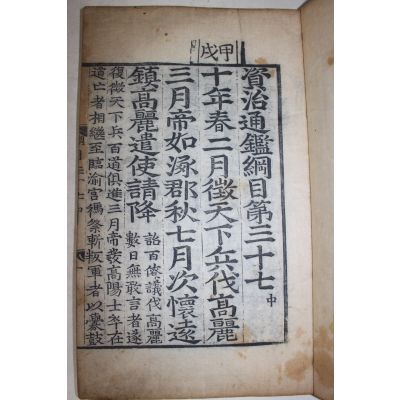 甲戌
資治通鑑綱目第三十七 中
十年春二月徵天下兵伐高麗
三月帝如涿郡秋七月次懷遠
鎮高麗遣使請降 詔百僚議伐高麗
數日無敢言者遂
復徵天下兵百道俱進三月帝發高陽士卒在
道亡者相繼至臨渝宮禡祭斬叛軍者以釁鼓